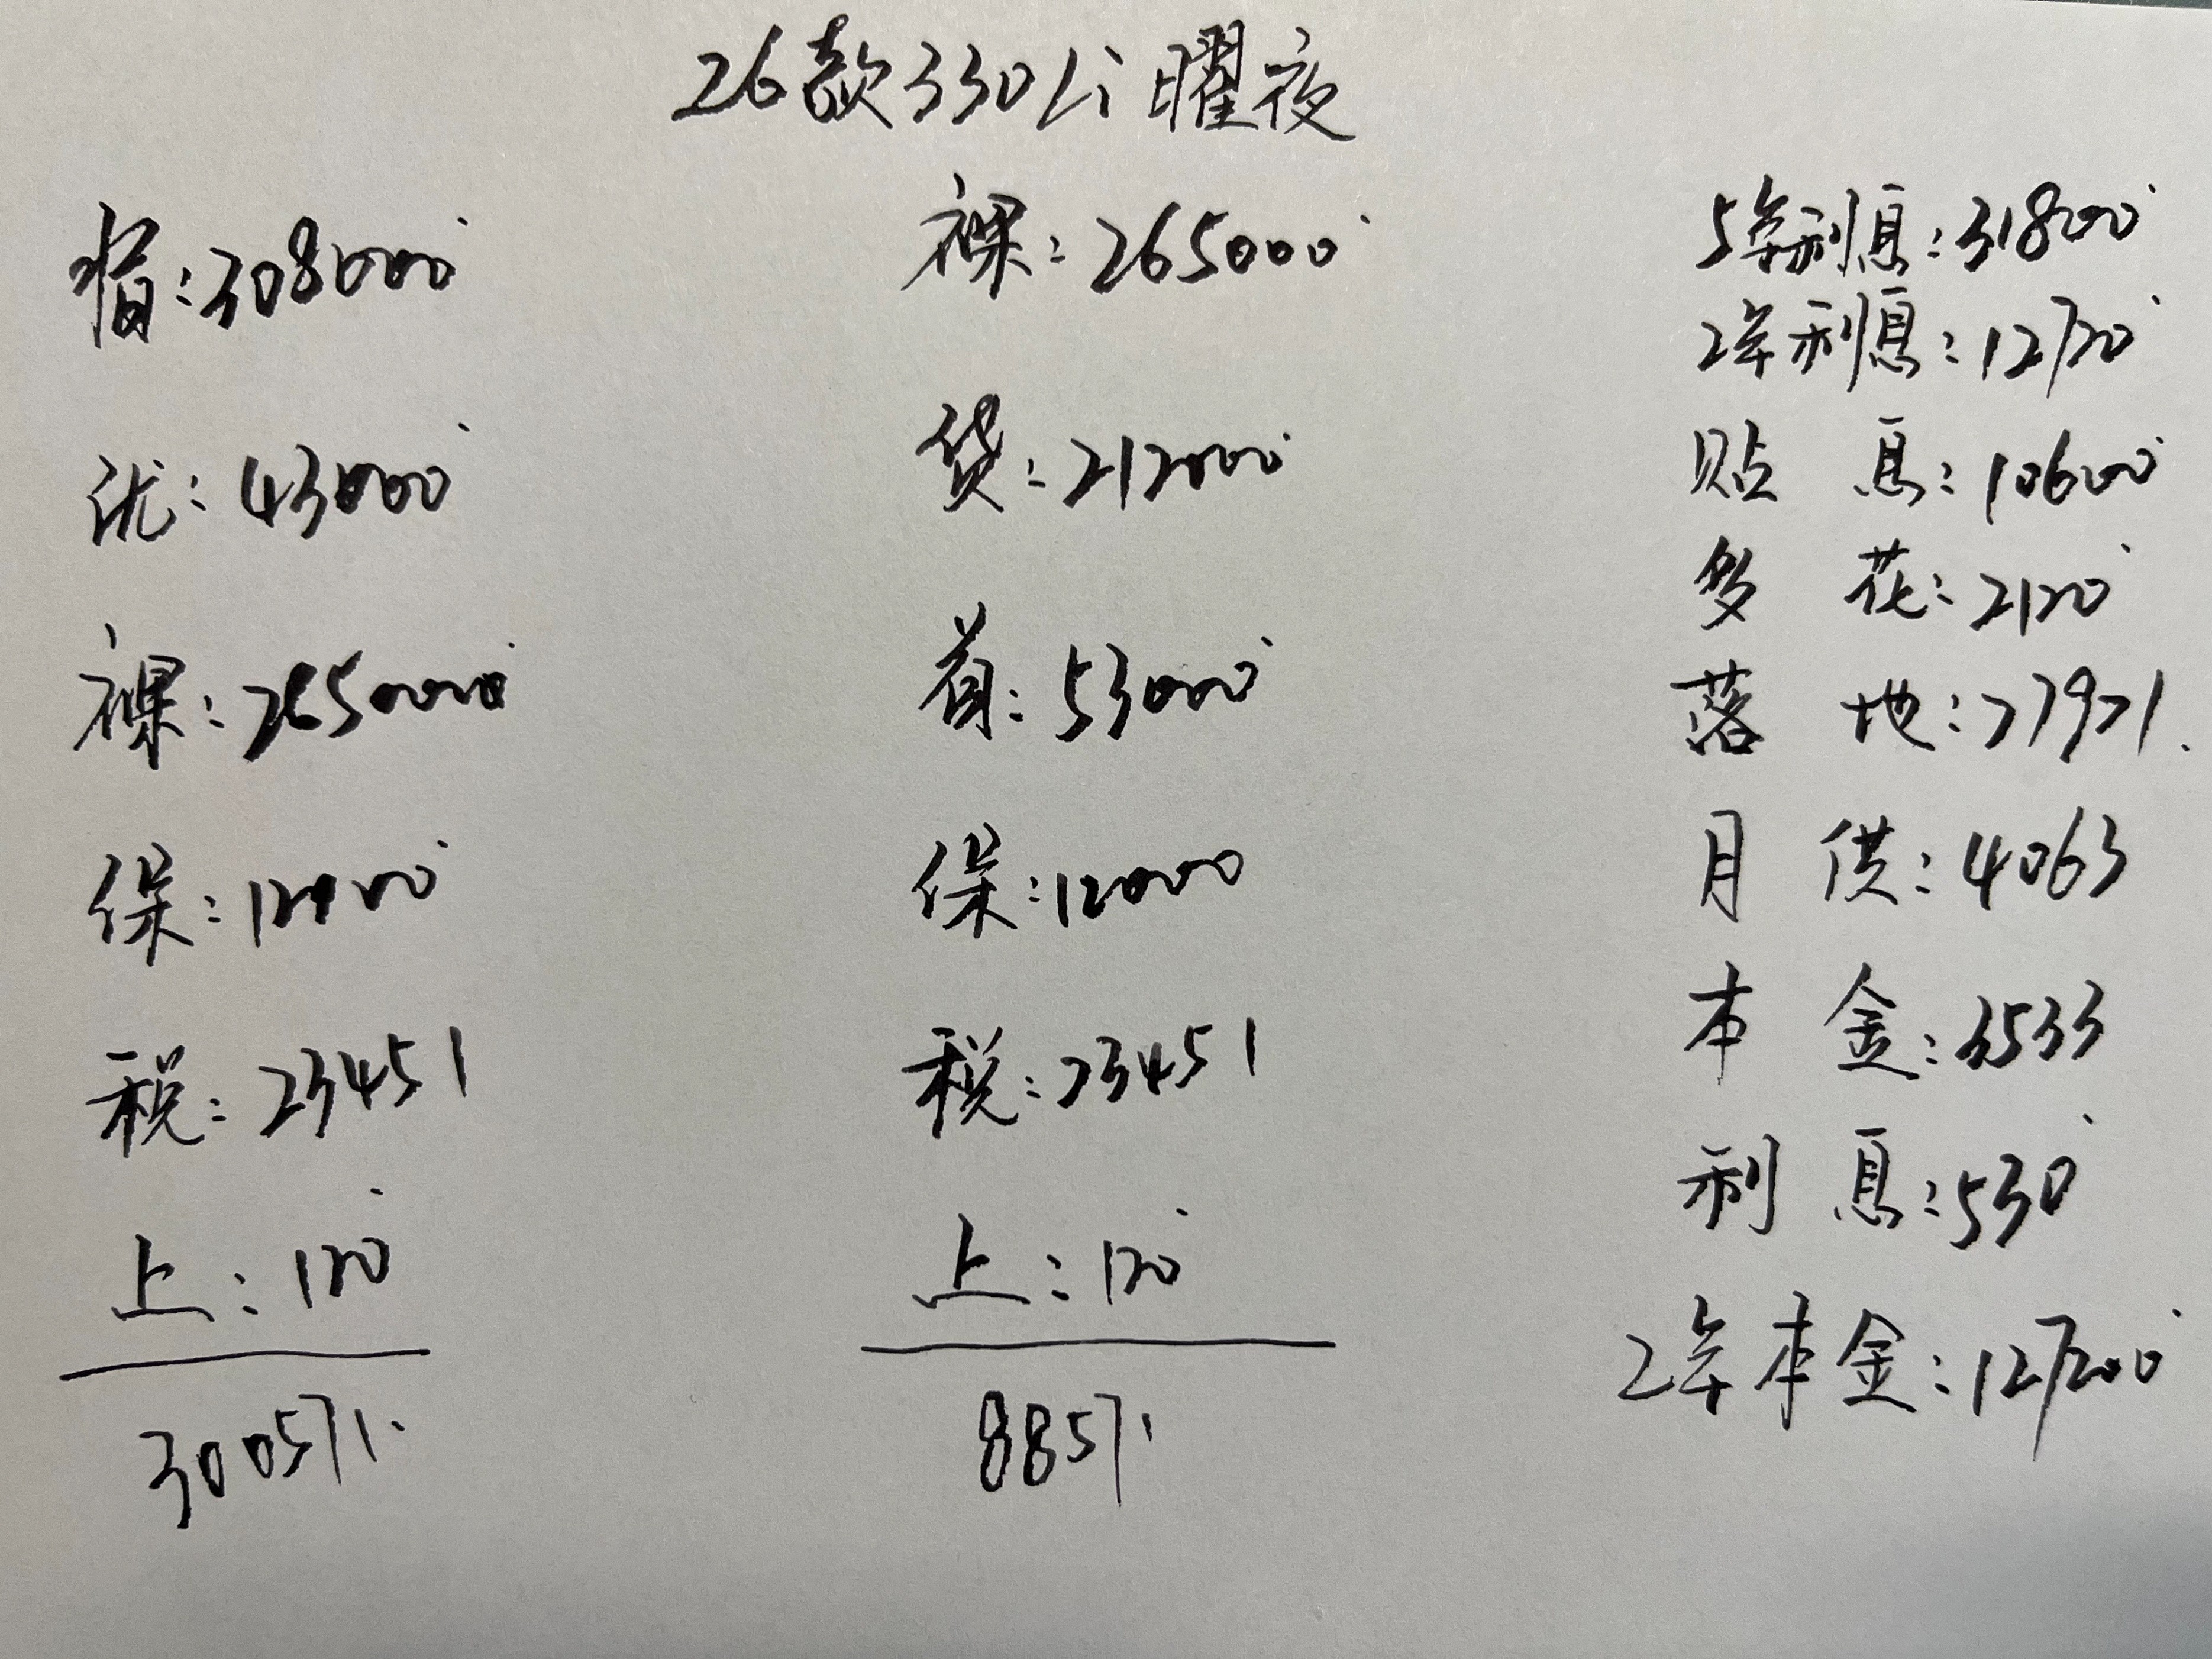 26款330Li曜夜
指:308000
优:43000
裸:265000
保:12000
税:23451
上:120
300571.
裸:265000
贷:212000
首:53000
保:12000
税:23451
上:120
88571
5年利息:31800
2年利息:12720
贴 息:10600
多 花:2120
落 地:27971.
月 供:4063
本 金:3533
利 息:530
2年本金:127200